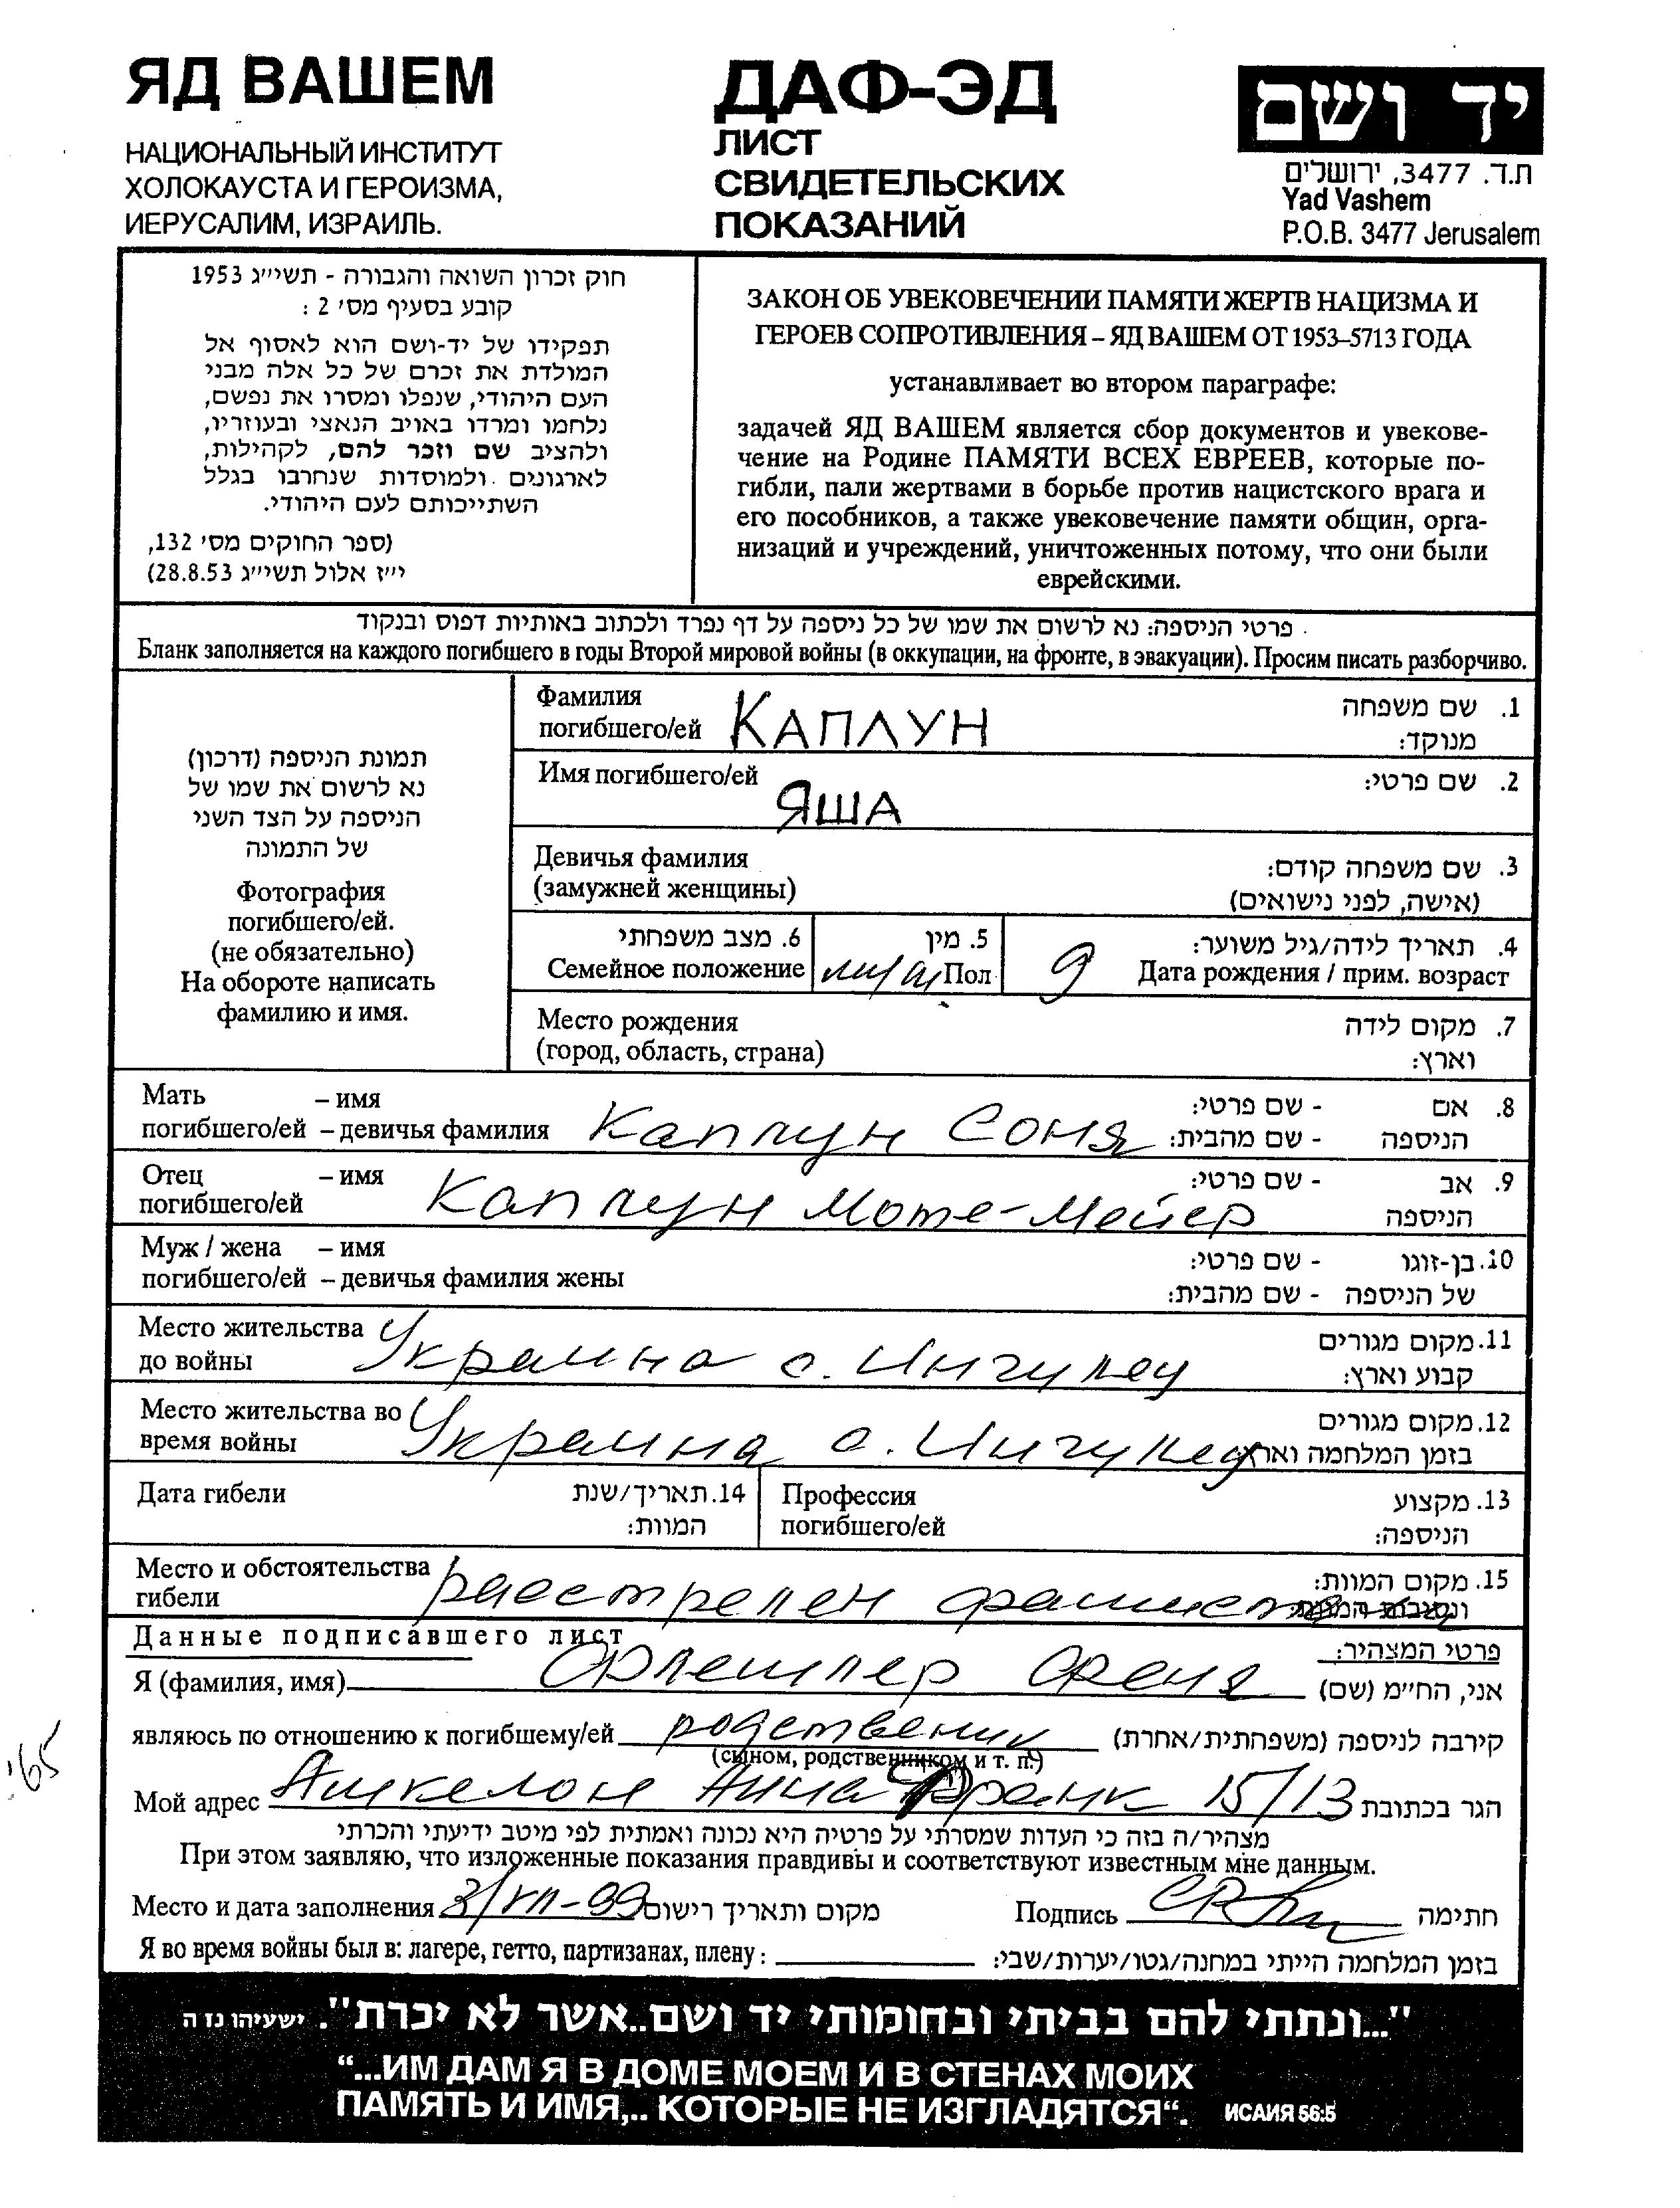 ЯД ВАШЕМ
НАЦИОНАЛЬНЫЙ ИНСТИТУТ
ХОЛОКАУСТА И ГЕРОИЗМА,
ИЕРУСАЛИМ, ИЗРАИЛЬ.
ДАФ-ЭД
ЛИСТ
СВИДЕТЕЛЬСКИХ
ПОКАЗАНИЙ
יד ושם
ת.ד. 3477, ירושלים
Yad Vashem
P.O.B. 3477 Jerusalem
חוק זכרון השואה והגבורה - תשי״ג 1953
קובע בסעיף מס׳ 2 :
תפקידו של יד-ושם הוא לאסוף אל
המולדת את זכרם של כל אלה מבני
העם היהודי, שנפלו ומסרו את נפשם,
נלחמו ומרדו באויב הנאצי ובעוזריו,
ולהציב שם וזכר להם, לקהילות,
לארגונים ולמוסדות שנחרבו בגלל
השתייכותם לעם היהודי.
(ספר החוקים מס׳ 132,
י״ז אלול תשי״ג 28.8.53)
ЗАКОН ОБ УВЕКОВЕЧЕНИИ ПАМЯТИ ЖЕРТВ НАЦИЗМА И
ГЕРОЕВ СОПРОТИВЛЕНИЯ – ЯД ВАШЕМ ОТ 1953–5713 ГОДА
устанавливает во втором параграфе:
задачей ЯД ВАШЕМ является сбор документов и увекове-
чение на Родине ПАМЯТИ ВСЕХ ЕВРЕЕВ, которые по-
гибли, пали жертвами в борьбе против нацистского врага и
его пособников, а также увековечение памяти общин, орга-
низаций и учреждений, уничтоженных потому, что они были
еврейскими.
פרטי הניספה: נא לרשום את שמו של כל ניספה על דף נפרד ולכתוב באותיות דפוס ובנקוד
Бланк заполняется на каждого погибшего в годы Второй мировой войны (в оккупации, на фронте, в эвакуации). Просим писать разборчиво.
תמונת הניספה (דרכון)
נא לרשום את שמו של
הניספה על הצד השני
של התמונה
Фотография
погибшего/ей.
(не обязательно)
На обороте написать
фамилию и имя.
Фамилия
погибшего/ей КАПЛУН
1. שם משפחה
מנוקד:
Имя погибшего/ей ЯША 2. שם פרטי:
Девичья фамилия
(замужней женщины)
3. שם משפחה קודם:
(אישה, לפני נישואים)
6. מצב משפחתי
Семейное положение
5. מין
Пол
9
4. תאריך לידה/גיל משוער:
Дата рождения / прим. возраст
Место рождения
(город, область, страна)
7. מקום לידה
וארץ:
Мать – имя
погибшего/ей – девичья фамилия Каплун Соня
8. אם - שם פרטי:
הניספה - שם מהבית:
Отец – имя
погибшего/ей Каплун Моте-Мейер
9. אב - שם פרטי:
הניספה
Муж / жена – имя
погибшего/ей – девичья фамилия жены
10. בן-זוגו - שם פרטי:
של הניספה - שם מהבית:
Место жительства
до войны Украина с. Ингулец
11. מקום מגורים
קבוע וארץ:
Место жительства во
время войны Украина с. Ингулец
12. מקום מגורים
בזמן המלחמה וארץ:
Дата гибели
14. תאריך/שנת
המוות:
Профессия
погибшего/ей
13. מקצוע
הניספה:
Место и обстоятельства
гибели расстрелен фашистами
15. מקום המוות:
ונסיבות המוות:
Данные подписавшего лист
פרטי המצהיר:
Я (фамилия, имя) Флешлер Феня אני, הח״מ (שם)
являюсь по отношению к погибшему/ей родственик קירבה לניספה (משפחתית/אחרת)
(сыном, родственником и т. п.)
Мой адрес Ашкелон Анна Франк 15/13 הגר בכתובת
מצהיר/ה בזה כי העדות שמסרתי על פרטיה היא נכונה ואמתית לפי מיטב ידיעתי והכרתי
При этом заявляю, что изложенные показания правдивы и соответствуют известным мне данным.
Место и дата заполнения 3/VII-99 מקום ותאריך רישום
Подпись חתימה
Я во время войны был в: лагере, гетто, партизанах, плену :
בזמן המלחמה הייתי במחנה/גטו/יערות/שבי:
"...ונתתי להם בביתי ובחומותי יד ושם..אשר לא יכרת". ישעיהו נז ה
“...ИМ ДАМ Я В ДОМЕ МОЕМ И В СТЕНАХ МОИХ
ПАМЯТЬ И ИМЯ,.. КОТОРЫЕ НЕ ИЗГЛАДЯТСЯ“. ИСАИЯ 56:5